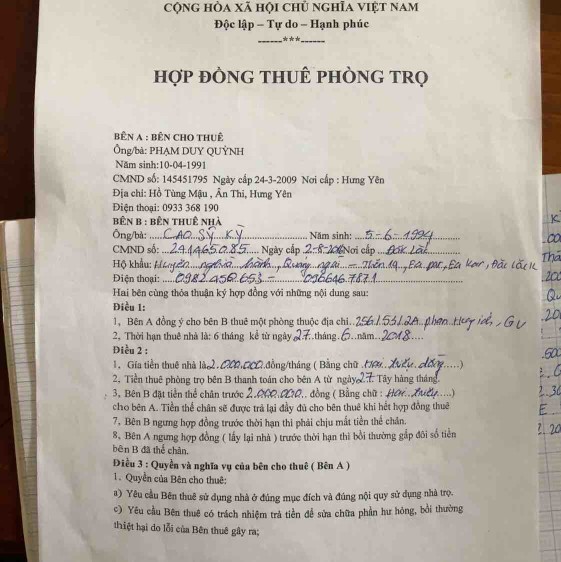 CỘNG HÒA XÃ HỘI CHỦ NGHĨA VIỆT NAM
Độc lập – Tự do – Hạnh phúc
------***------
HỢP ĐỒNG THUÊ PHÒNG TRỌ
BÊN A : BÊN CHO THUÊ
Ông/bà: PHẠM DUY QUỲNH
Năm sinh:10-04-1991
CMND số: 145451795 Ngày cấp 24-3-2009 Nơi cấp : Hưng Yên
Địa chỉ: Hồ Tùng Mậu , Ân Thi, Hưng Yên
Điện thoại: 0933 368 190
BÊN B : BÊN THUÊ NHÀ
Ông/bà: CAO SỸ KỲ Năm sinh: 5-6-1994
CMND số: Ngày cấp Nơi cấp Đăk Lăk
Hộ khẩu: Huyện nghĩa hành, Quảng ngãi
Điện thoại:
Hai bên cùng thỏa thuận ký hợp đồng với những nội dung sau:
Điều 1:
1, Bên A đồng ý cho bên B thuê một phòng thuộc địa chỉ
2, Thời hạn thuê nhà là: 6 tháng kể từ ngày 27.tháng.6..năm..2018
Điều 2 :
1. Gía tiền thuê nhà là 2.000.000 đồng/tháng ( Bằng chữ .Hai triệu đồng.)
2, Tiền thuê phòng trọ bên B thanh toán cho bên A từ ngày 27 Tây hàng tháng.
3, Bên B đặt tiền thế chân trước 2.000.000.. đồng ( Bằng chữ : Hai triệu....)
cho bên A. Tiền thế chân sẽ được trả lại đầy đủ cho bên thuê khi hết hợp đồng thuê
7, Bên B ngưng hợp đồng trước thời hạn thì phải chịu mất tiền thế chân.
8, Bên A ngưng hợp đồng ( lấy lại nhà ) trước thời hạn thì bồi thường gấp đôi số tiền
bên B đã thế chân.
Điều 3 : Quyền và nghĩa vụ của bên cho thuê ( Bên A )
1. Quyền của Bên cho thuê:
a) Yêu cầu Bên thuê sử dụng nhà ở đúng mục đích và đúng nội quy sử dụng nhà trọ.
c) Yêu cầu Bên thuê có trách nhiệm trả tiền để sửa chữa phần hư hỏng, bồi thường
thiệt hại do lỗi của Bên thuê gây ra;